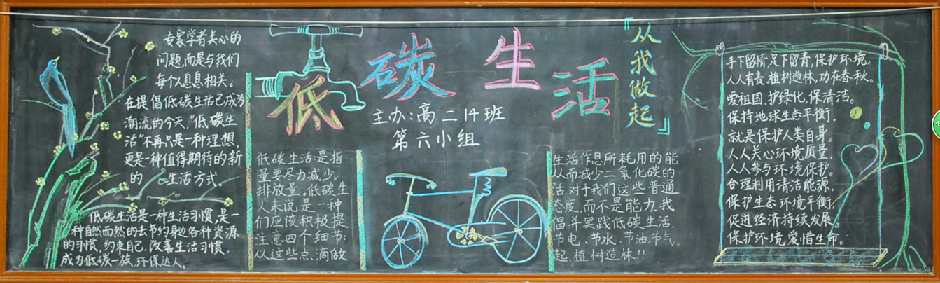 专家学者关心的
问题,而是与我们
每个人息息相关。
在提倡低碳生活已成为
潮流的今天,“低碳生
活”不再只是一种理想,
更是一种值得期待的新
的 生活方式。
低碳生活是一种生活习惯,是一
种自然而然的去节约身边各种资源
的习惯,约束自己,改善生活习惯,
成为低碳一族,环保达人。
低碳生活
『从我做起』
主办:高二14班
第六小组
低碳生活是指
量要尽力减少,
排放量。低碳生
人来说是一种
们应该积极提
注意四个细节:
从这些点、滴做
生活作息所耗用的能
从而减少二氧化碳的
活对于我们这些普通
态度,而不是能力,我
倡并实践低碳生活,
节电、节水、节油、节气,
起,植树造林!!
手下留情,足下留青,保护环境,
人人有责,植树造林,功在春秋。
爱祖国,护绿化,保清洁。
保持地球生态平衡,
就是保护人类自身。
人人关心环境质量,
人人参与环境保护。
合理利用清洁能源,
保护生态环境平衡,
促进经济持续发展。
保护环境,爱惜生命。